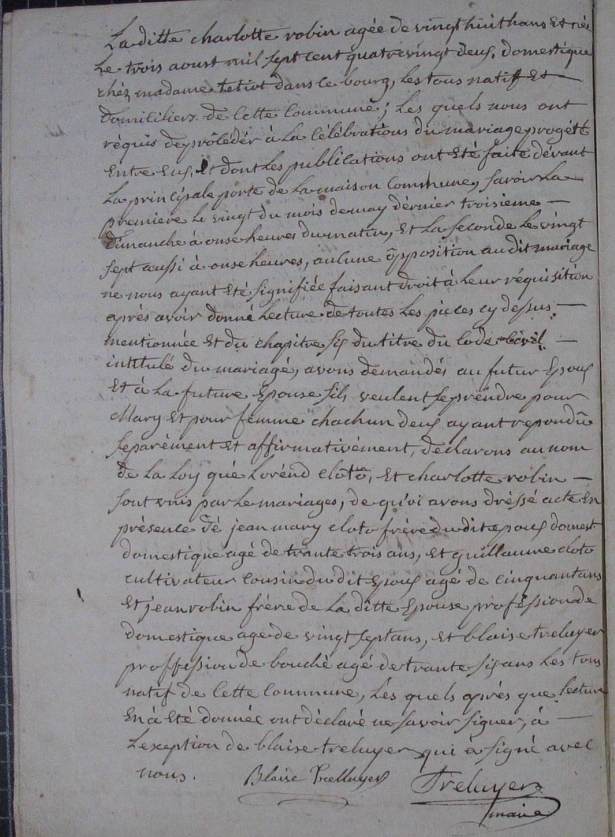 La ditte charlotte robin agée de vingt huit hans Et née
Le trois aoust mil sept cent quatre vingt deus, domestique
chéz madame tetiot dans ce bourg, Les tous natif Et
domiciliers de Cette Commune; Les quels nous ont
réquis de procéder à La Célébrations du mariage progété
Entre Eus, Et dont Les publications ont Eté faite dévant
La principale porte de La maison Commune, savoir La
premiere Le vingt du mois de may dérnier troisieme
dimanche à onse heures du matin, Et La seconde Le vingt
sept aussi à onse heures, aucune opposition au dit mariage
ne nous ayant Eté signifiée faisant droit à Leur réquisition
après avoir donné Lecture de toutes Les pieces cy dessus
mentionnée Et du chapitre sis du titre du Code Civil
intitulé du mariage, avons demandés au futur Epous
Et à La future Epouse sils veulent se préndre pour
Mary Et pour femme chachun deus ayant repondu
separément Et affirmativément, déclarons au nom
de La Loy que Lorénd cloto, Et charlotte robin
sont unis par Le mariages, de qu'oi avons dréssé acte En
présence de jean mary cloto frère du dit Epous domest
domestique agé de trante trois ans, Et guillaume cloto
cultivateur cousin du dit Epous agé de cinquant ans
Et jean robin frére de La ditte Epouse proféssion de
domestique agé de vingt sept ans, Et blaise treluyer
proffession de bouché agé de trante sis ans Les tous
natif de Cette Commune, Les quels après que Lecture
En a Eté donnée ont déclaré ne savoir signer, à
L'exception de blaise treluyer qui a signé avec
nous. Blaise Trelluyer Treluyer
maire